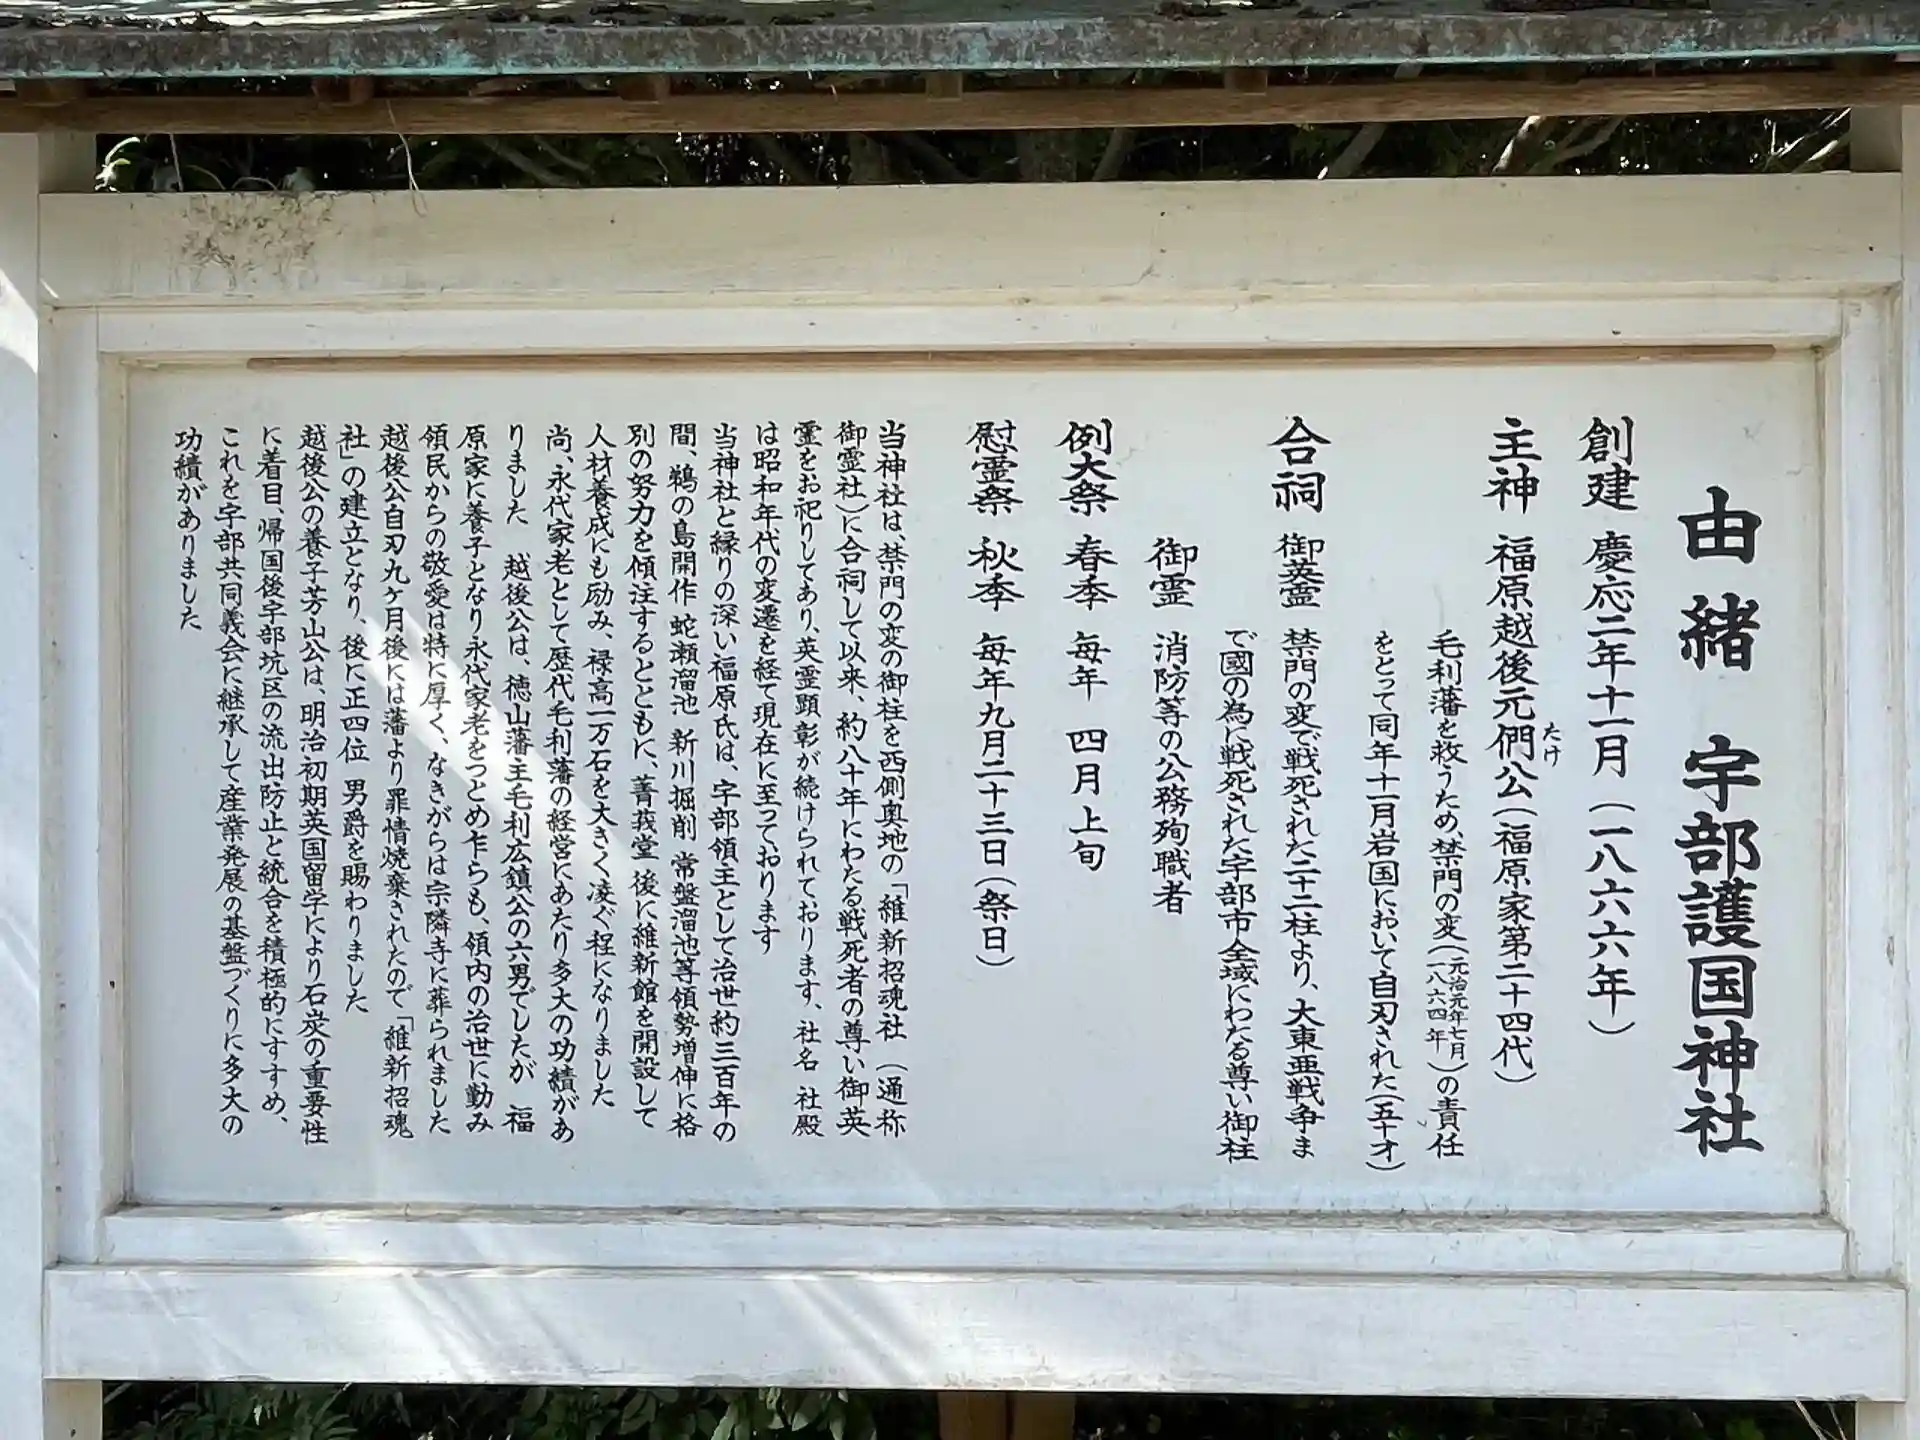 由緒　宇部護国神社
創建　慶応二年十一月（一八六六年）
主神　福原越後元僴公（福原家第二十四代）
たけ
毛利藩を救うため、禁門の変（元治元年七月一八六四年）の責任
をとって同年十一月岩国において自刃された（五十才）
合祠　御英霊　禁門の変で戦死された二十二柱より、大東亜戦争ま
で國の為に戦死された宇部市全域にわたる尊い御柱
御霊　消防等の公務殉職者
例大祭　春季　毎年　四月上旬
慰霊祭　秋季　毎年九月二十三日（祭日）
当神社は、禁門の変の御柱を西側奥地の「維新招魂社（通称
御霊社）に合祠して以来、約八十年にわたる戦死者の尊い御英
霊をお祀りしてあり、英霊顕彰が続けられております、社名　社殿
は昭和年代の変遷を経て現在に至っております
当神社と縁りの深い福原氏は、宇部領主として治世約三百年の
間、鵜の島開作　蛇瀬溜池　新川掘削　常盤溜池等領勢増伸に格
別の努力を傾注するとともに、菁莪堂　後に維新館を開設して
人材養成にも励み、禄高一万石を大きく凌ぐ程になりました
尚、永代家老として歴代毛利藩の経営にあたり多大の功績があ
りました　越後公は、徳山藩主毛利広鎮公の六男でしたが　福
原家に養子となり永代家老をつとめ乍らも、領内の治世に勤み
領民からの敬愛は特に厚く、なきがらは宗隣寺に葬られました
越後公自刃九ヶ月後には藩より罪情焼棄されたので「維新招魂
社」の建立となり、後に正四位　男爵を賜わりました
越後公の養子芳山公は、明治初期英国留学により石炭の重要性
に着目、帰国後宇部坑区の流出防止と統合を積極的にすすめ、
これを宇部共同義会に継承して産業発展の基盤づくりに多大の
功績がありました